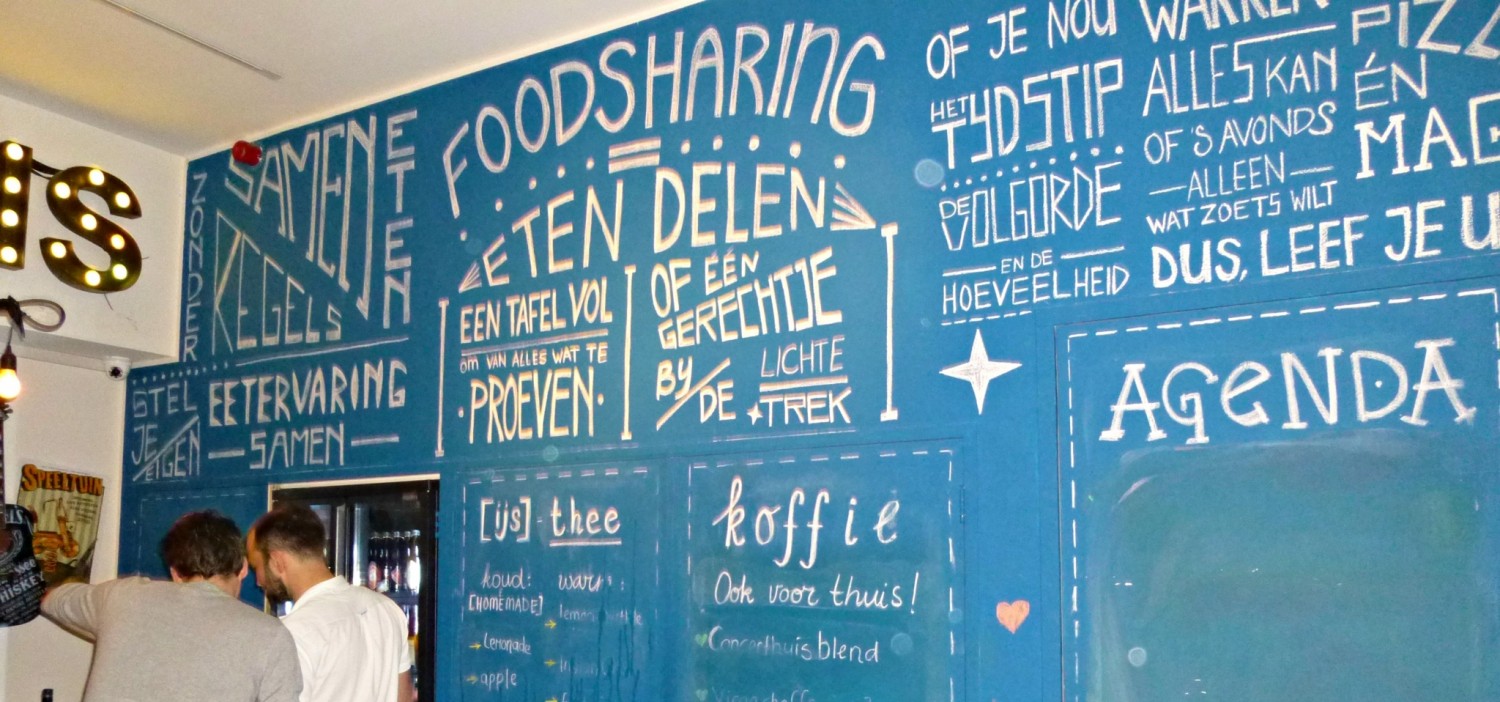 ZONDER
SAMEN
ETEN
KEGELS
STEL
JE
EIGEN
EETERVARING
SAMEN
FOODSHARING
=
ETEN DELEN
EEN TAFEL VOL
OM VAN ALLES WAT TE
PROEVEN
OF ÉÉN
GERECHTJE
BY
DE
LICHTE
TREK
OF JE NOU
HET
TYDSTIP
DE
VOLGORDE
EN DE
HOEVEELHEID
ALLES KAN
OF 'S AVONDS
ALLEEN
WAT ZOETS WILT
ÉN
DUS, LEEF JE
AGENDA
[ijs]-thee
koud:
[HOMEMADE]
→ Lemonade
→ apple
koffie
Ook voor thuis!
Concerthuis blend
SPEELTUIN